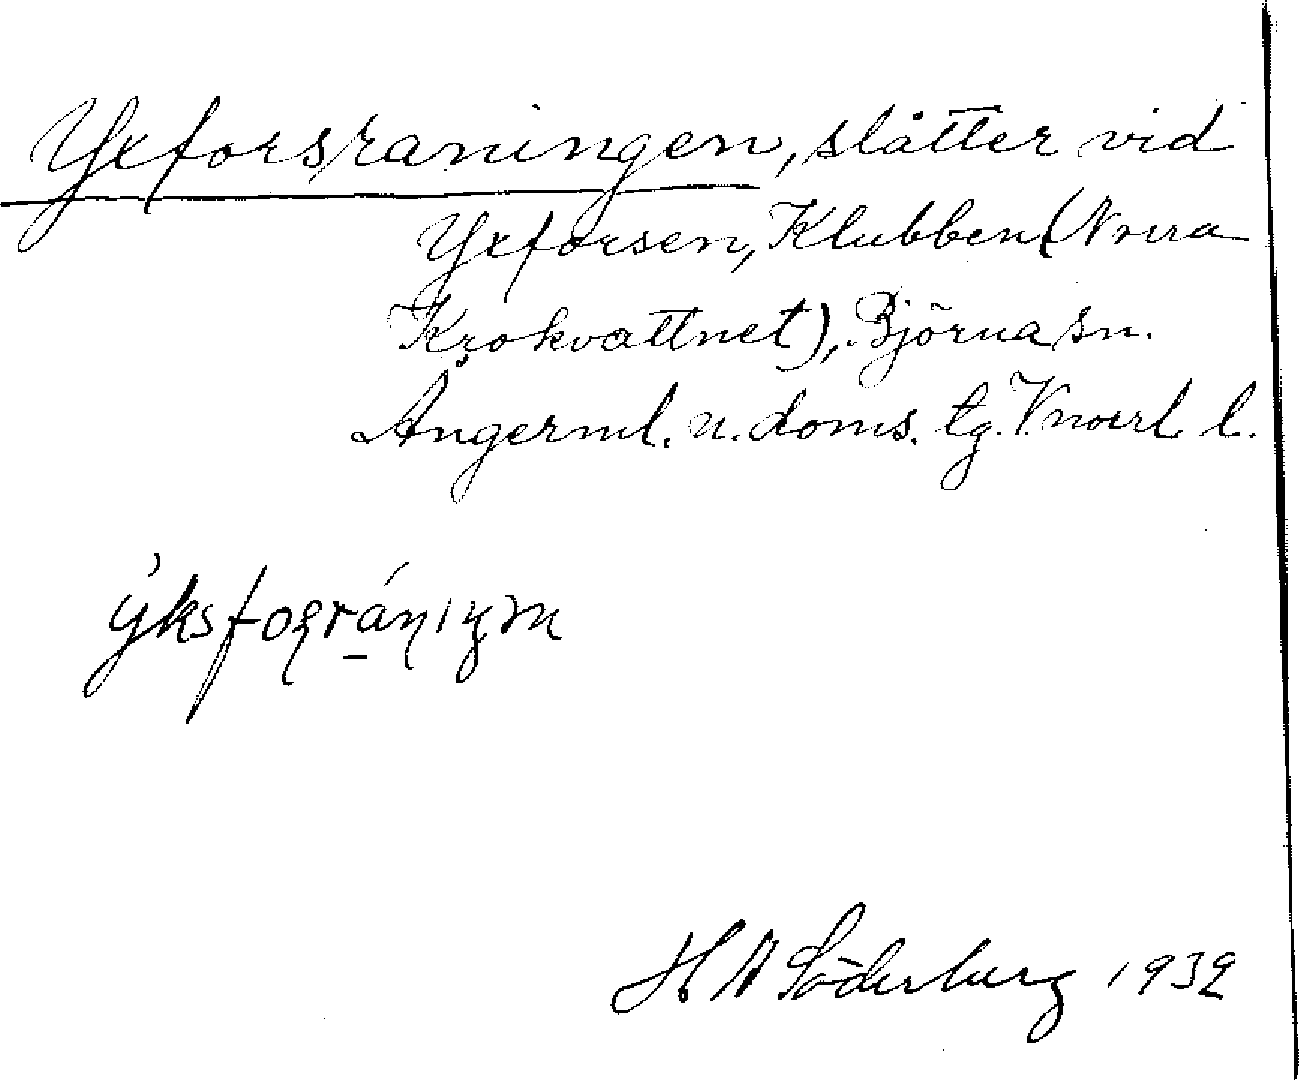 Yxforsraningen, slåtter vid
Yxforsen, Klubben (Norra
Krokvattnet), Björna sn.
Ångerml. n. doms. tg. Vnorrl. l.
H N Söderberg 1932